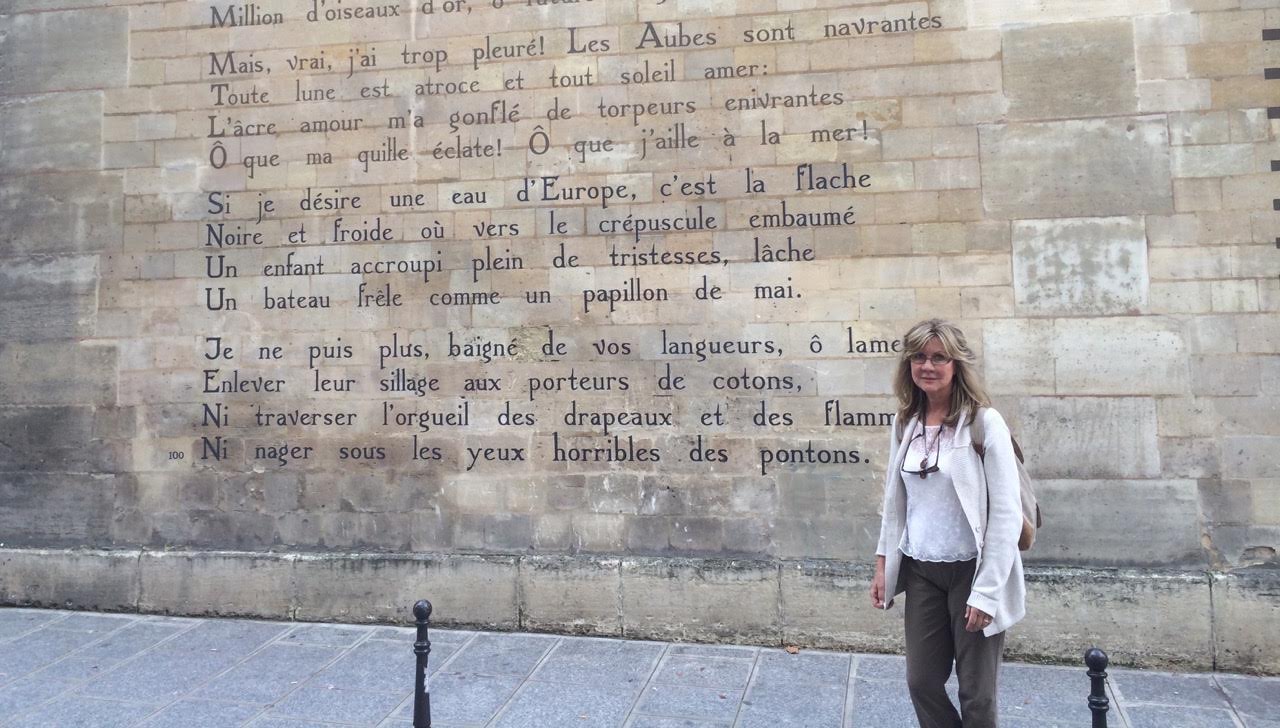 Million d'oiseaux d'or, ô
Mais, vrai, j'ai trop pleuré! Les Aubes sont navrantes
Toute lune est atroce et tout soleil amer:
L'âcre amour m'a gonflé de torpeurs enivrantes
Ô que ma quille éclate! Ô que j'aille à la mer!
Si je désire une eau d'Europe, c'est la flache
Noire et froide où vers le crépuscule embaumé
Un enfant accroupi plein de tristesses, lâche
Un bateau frêle comme un papillon de mai.
Je ne puis plus, baigné de vos langueurs, ô lame
Enlever leur sillage aux porteurs de cotons,
Ni traverser l'orgueil des drapeaux et des flamm
100 Ni nager sous les yeux horribles des pontons.